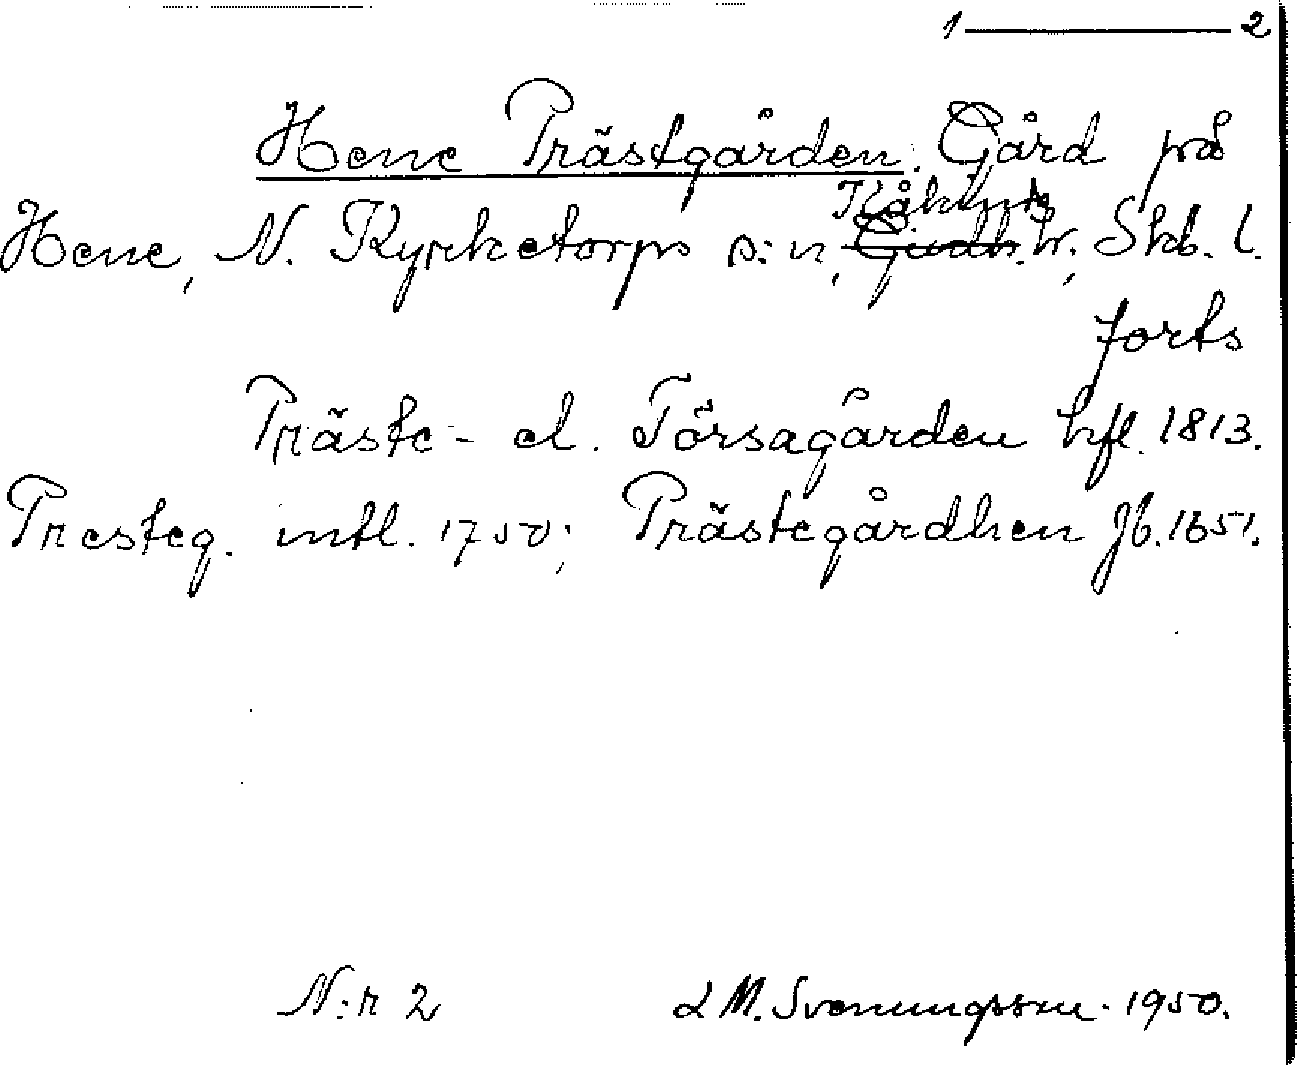 1 ——— 2
Hene Prästgården. Gård på
Hene, N. Kyrketorps s:n, Kåkinds hr, Skb. l.
forts
Präste- el. Törsagården hfl. 1813.
Presteg. intl. 1750; Prästegårdhen Jb. 1651.
N:r 2 L M. Svenungsson. 1950.